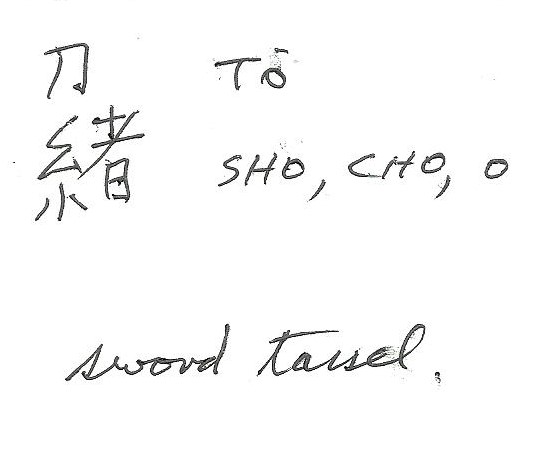 刀 TŌ
緒 SHO, CHO, O
sword tassel.